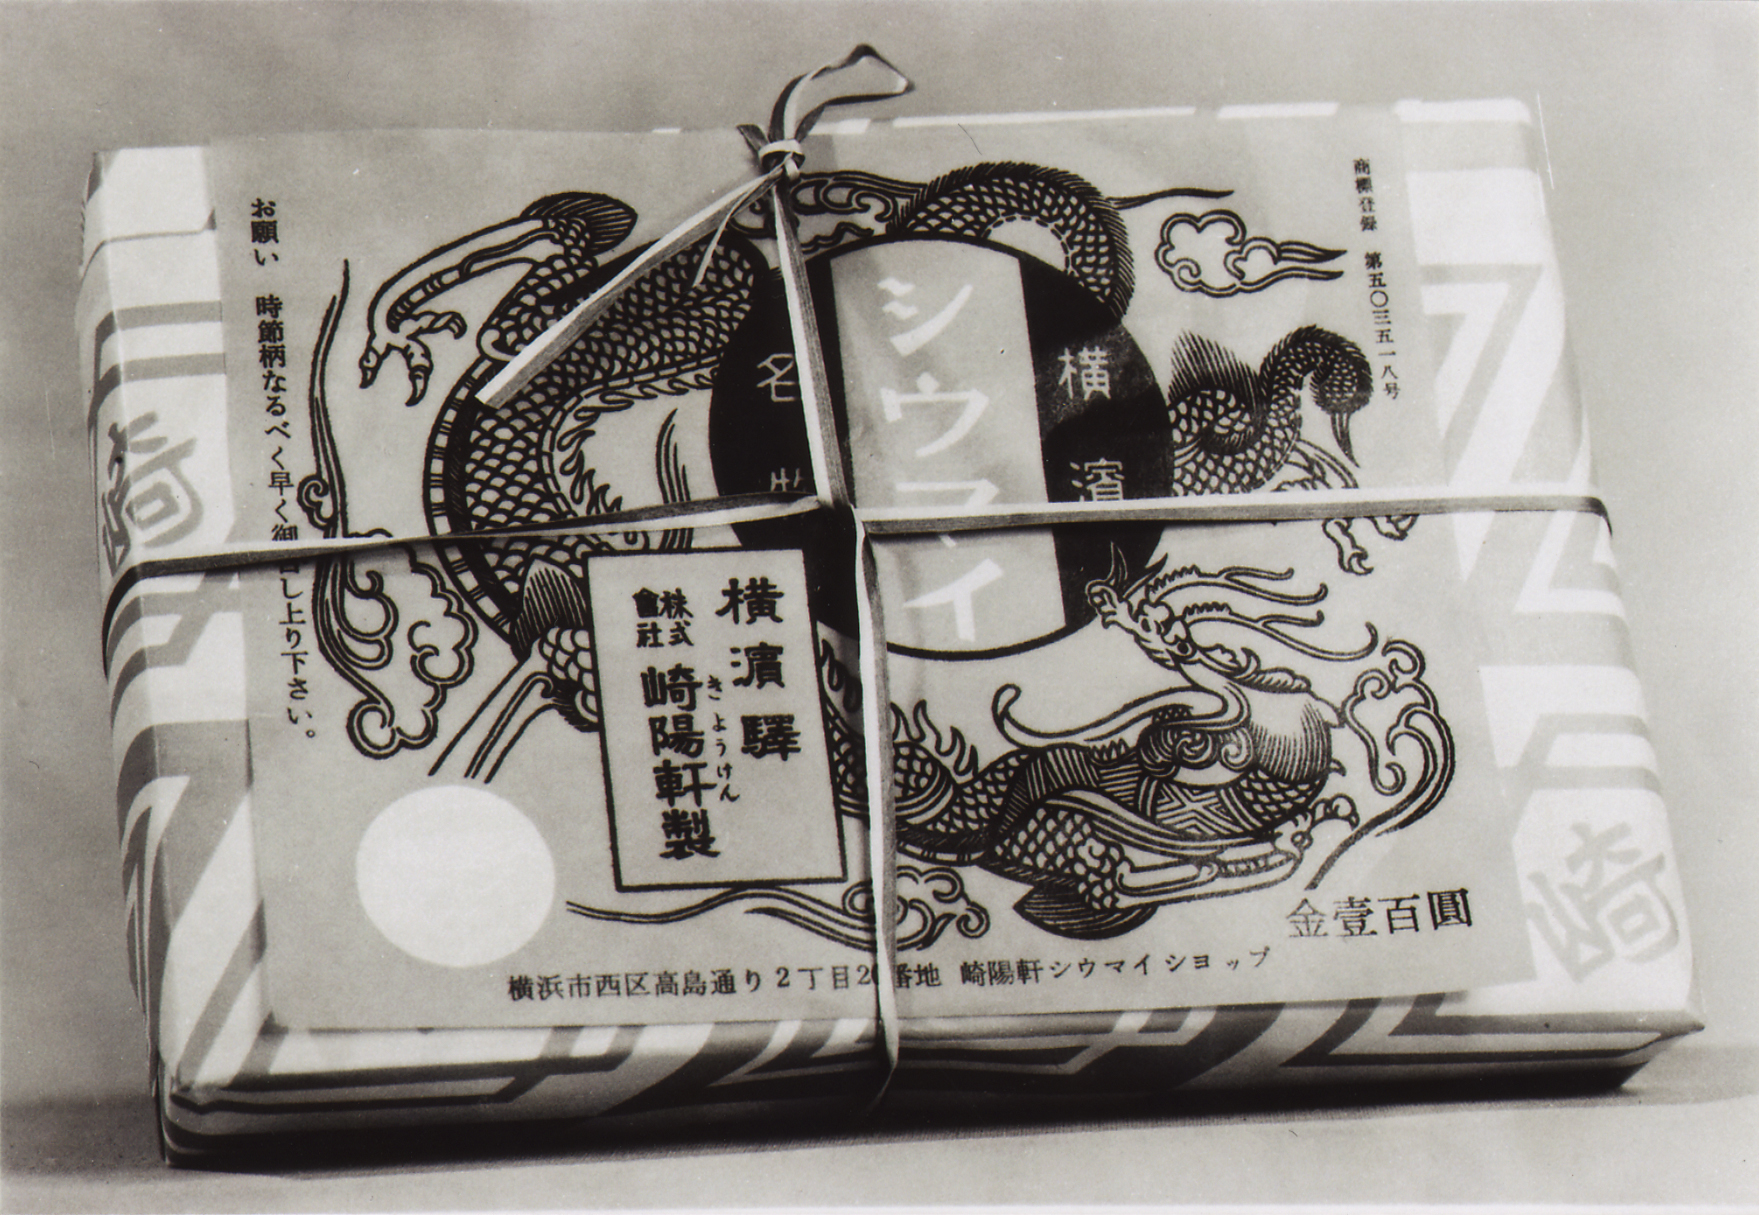 商標登録 第五〇三五一八号
横濱
シウマイ
名物
横濱驛
きようけん
株式會社
崎陽軒製
お願い 時節柄なるべく早く御召し上り下さい。
金壹百圓
横浜市西区高島通り2丁目20番地 崎陽軒シウマイショップ
崎
崎